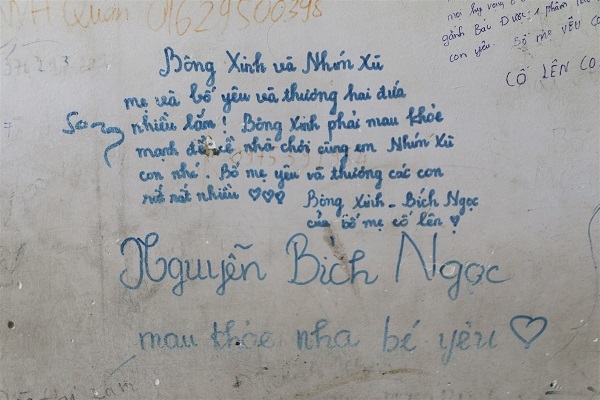 QUÂN 01629500398
gánh Bác Được 1 phâm
con yêu. Số mẹ YÊU
CỐ LÊN CO
Bông Xinh và Nhím Xù
mẹ và bố yêu và thương hai đứa
nhiều lắm! Bông Xinh phải mau khỏe
mạnh để về nhà chơi cùng em Nhím Xù
con nhé. Bố mẹ yêu và thương các con
rất rất nhiều ♡♡♡
Bông Xinh - Bích Ngọc
của bố mẹ cố lên!
Nguyễn Bích Ngọc
mau khỏe nha bé yêu ♡